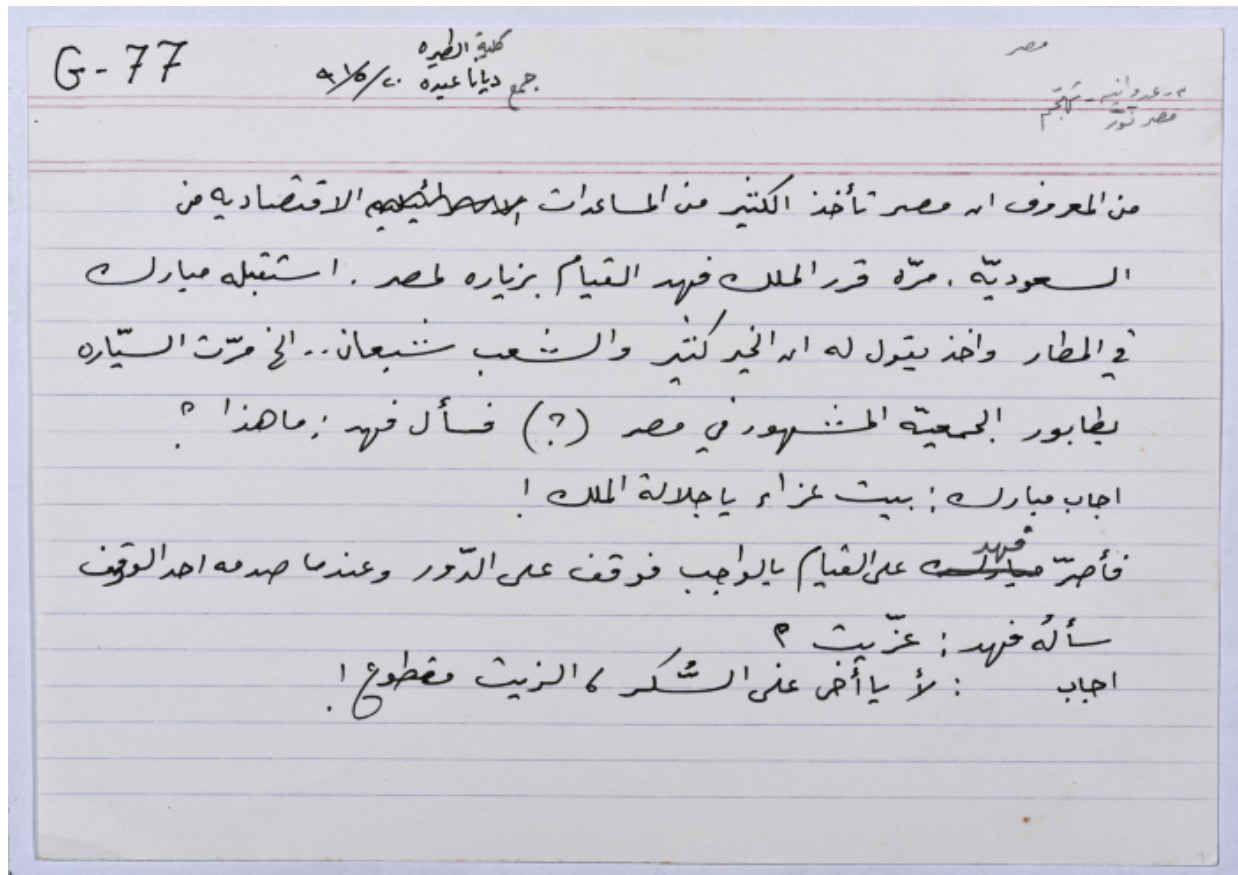 G-77
كلية الطيره
جمع ديانا عبده ٢٠/٥/٩١
مصر
عدوانيه - تهجّم
مصر
من المعروف ان مصر تأخذ الكثير من المساعدات الاقتصاديه من
السعوديّه. مرّه قرر الملك فهد القيام بزياره لمصر. استقبله مبارك
في المطار واخذ يقول له ان الخير كثير والشعب شبعان.. الخ مرّت السيّاره
بطابور الجمعيّه المشهور في مصر (؟) فسأل فهد: ما هذا ؟
اجاب مبارك: بيت عزاء يا جلالة الملك !
فأصرّ فهد على القيام بالواجب فوقف على الدّور وعندما صدمه احد الوقوف
سألهُ فهد: عزّيت ؟
اجاب : لأ يا أخى على السُّكر، الزيت مقطوع !